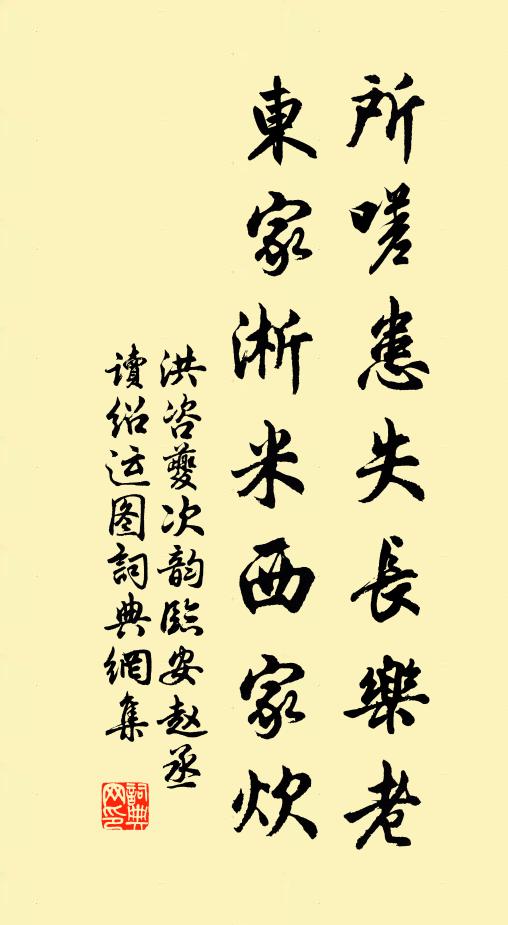 所嗟患失長樂老
東家淅米西家炊
洪咨夔次韵臨安趙丞
讀紹运图詞典網集
詞典网印